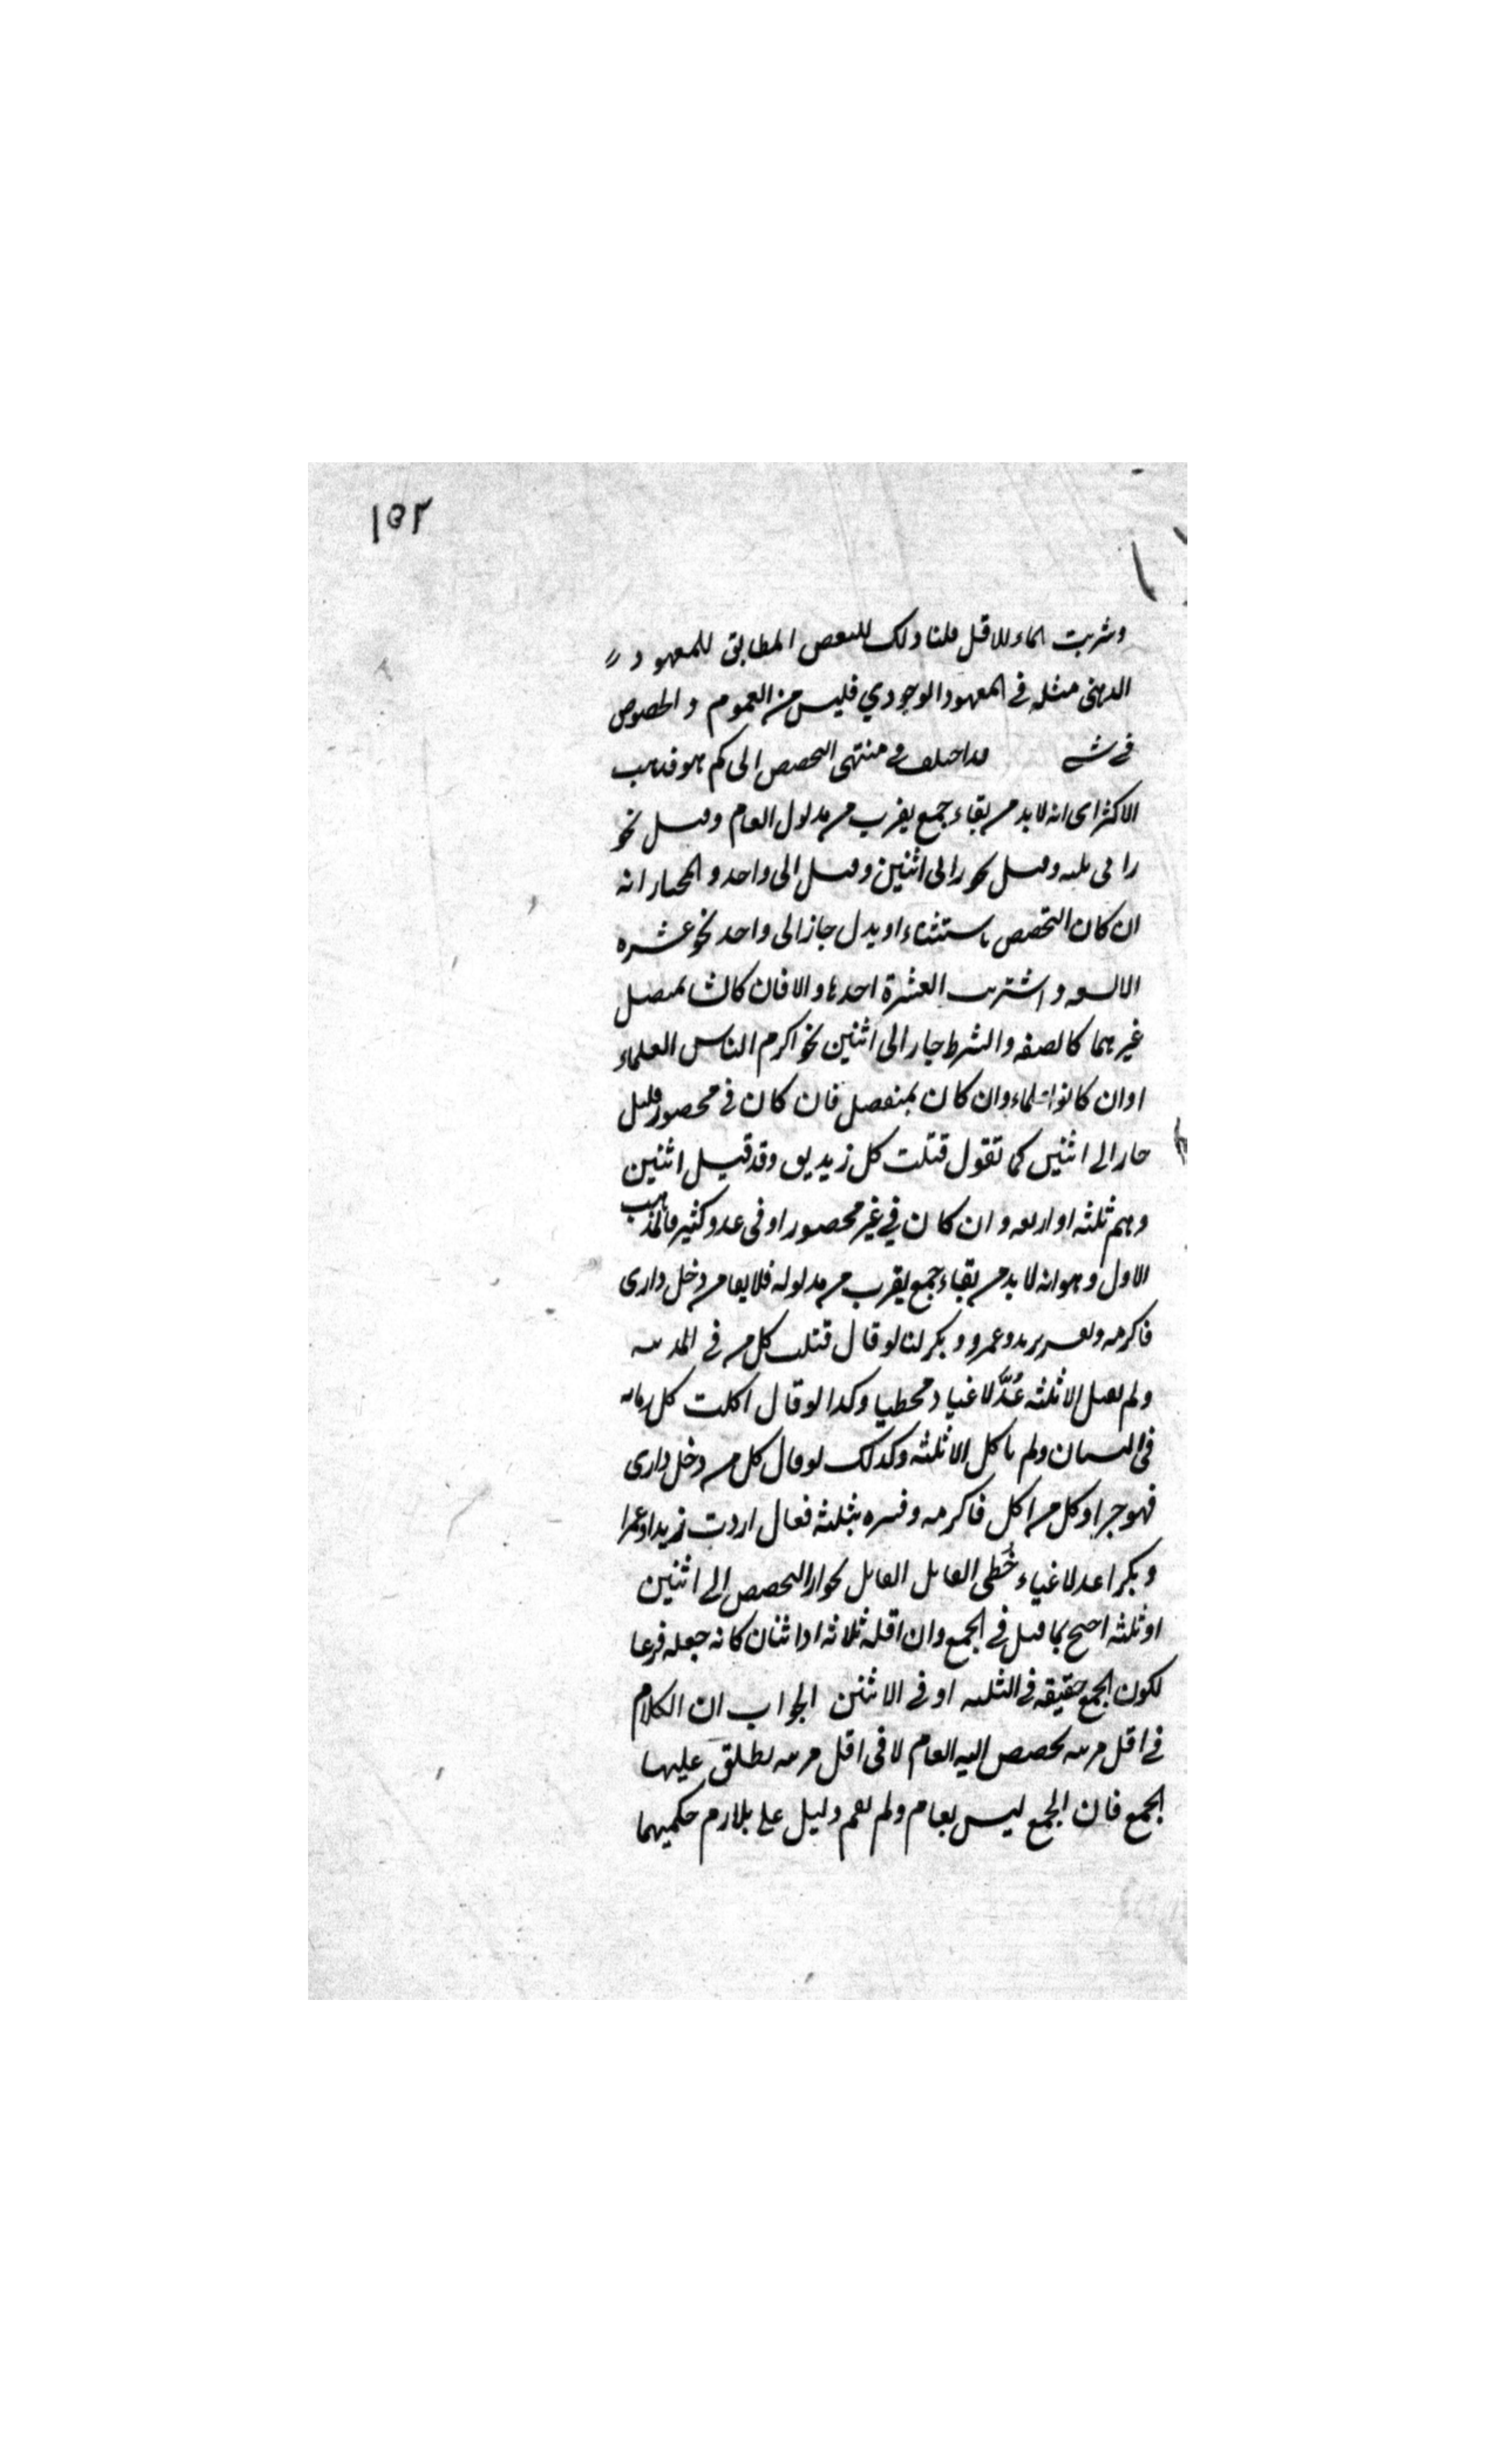 ١٥٢
وشربت الماء للاقل قلنا ذلك للبعض المطابق للمعهود
الذهني مثله في المعهود الوجودي فليس من العموم والخصوص
في شيء قد اختلف في منتهى التخصيص الى كم هو فذهب
الاكثر الى انه لا بد من بقاء جمع يقرب من مدلول العام وقيل نحو
ز الى ثلثة وقيل نحو ز الى اثنين وقيل الى واحد والمختار انه
ان كان التخصيص باستثناء او بدل جاز الى واحد نحو عشره
الا تسعه واشتريت العشرة احدها والا فان كان بمتصل
غيرهما كالصفه والشرط جاز الى اثنين نحو اكرم الناس العلماء
او ان كانوا علماء وان كان بمنفصل فان كان في محصور قليل
جاز الى اثنين كما تقول قتلت كل زنديق وقد قتل اثنين
وهم ثلثه او اربعه وان كان في غير محصور او في عدد كثير فالمذهب
الاول وهو انه لا بد من بقاء جمع يقرب من مدلوله فلا يقال من دخل دارى
فاكرمه ويفسر بزيد وعمرو وبكر لنا لو قال قتلت كل من في المدينه
ولم يقتل الا ثلثه عُدَّ لاغيا ومخطيا وكذا لو قال اكلت كل رمانه
في البستان ولم ياكل الا ثلثه وكذلك لو قال كل من دخل دارى
فهو حر او كل من اكل فاكرمه وفسره بثلثه فقال اردت زيدا وعمرا
وبكرا عد لاغيا وخُطى القايل القايل بجواز التخصيص الى اثنين
او ثلثه احتج بما قيل في الجمع وان اقله ثلاثه او اثنان كانه جعله فرعا
لكون الجمع حقيقه في الثلثه او في الاثنين الجواب ان الكلام
في اقل مرتبه يخصص اليه العام لا في اقل مرتبه يطلق عليها
الجمع فان الجمع ليس بعام ولم يقم دليل على تلازم حكميهما